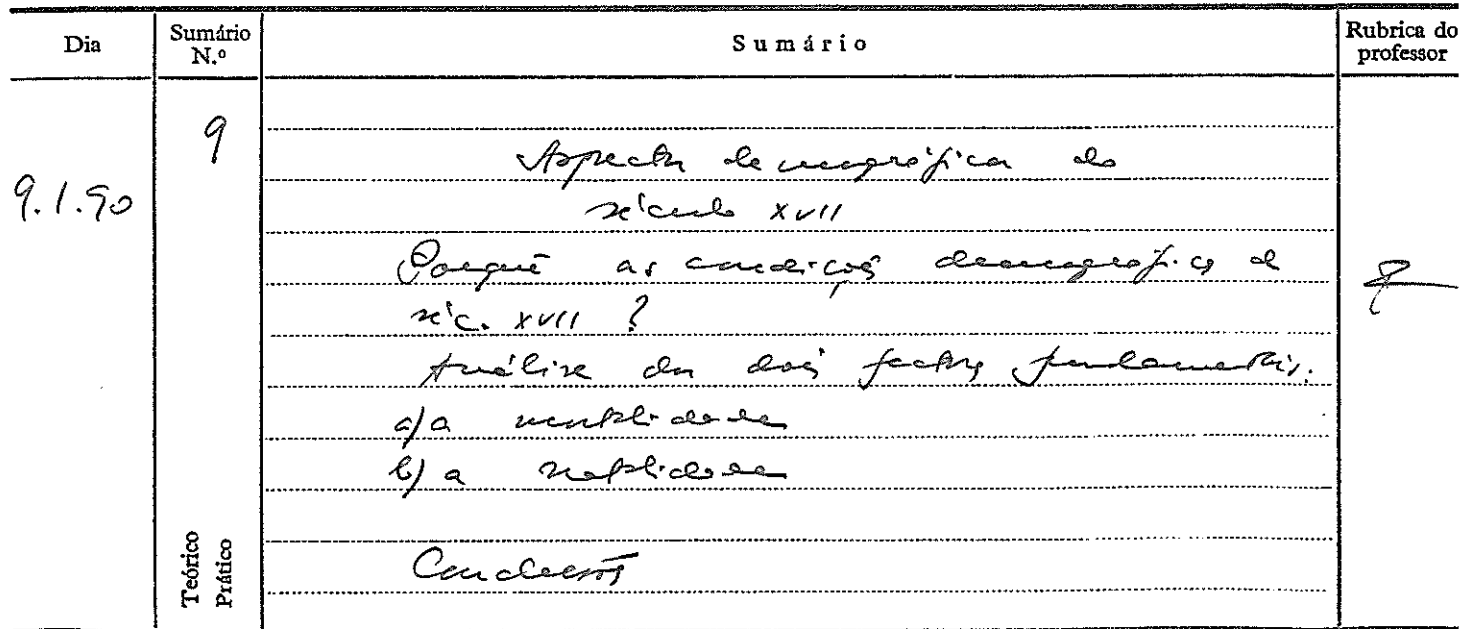 Dia
Sumário N.º
Sumário
Rubrica do professor
9.1.90
9
Aspectos demográficos do
século XVII
Porquê as condições demográficas do
séc. XVII ?
Análise dos dois factores fundamentais.
a) a mortalidade
b) a natalidade
Conclusões
Teórico
Prático